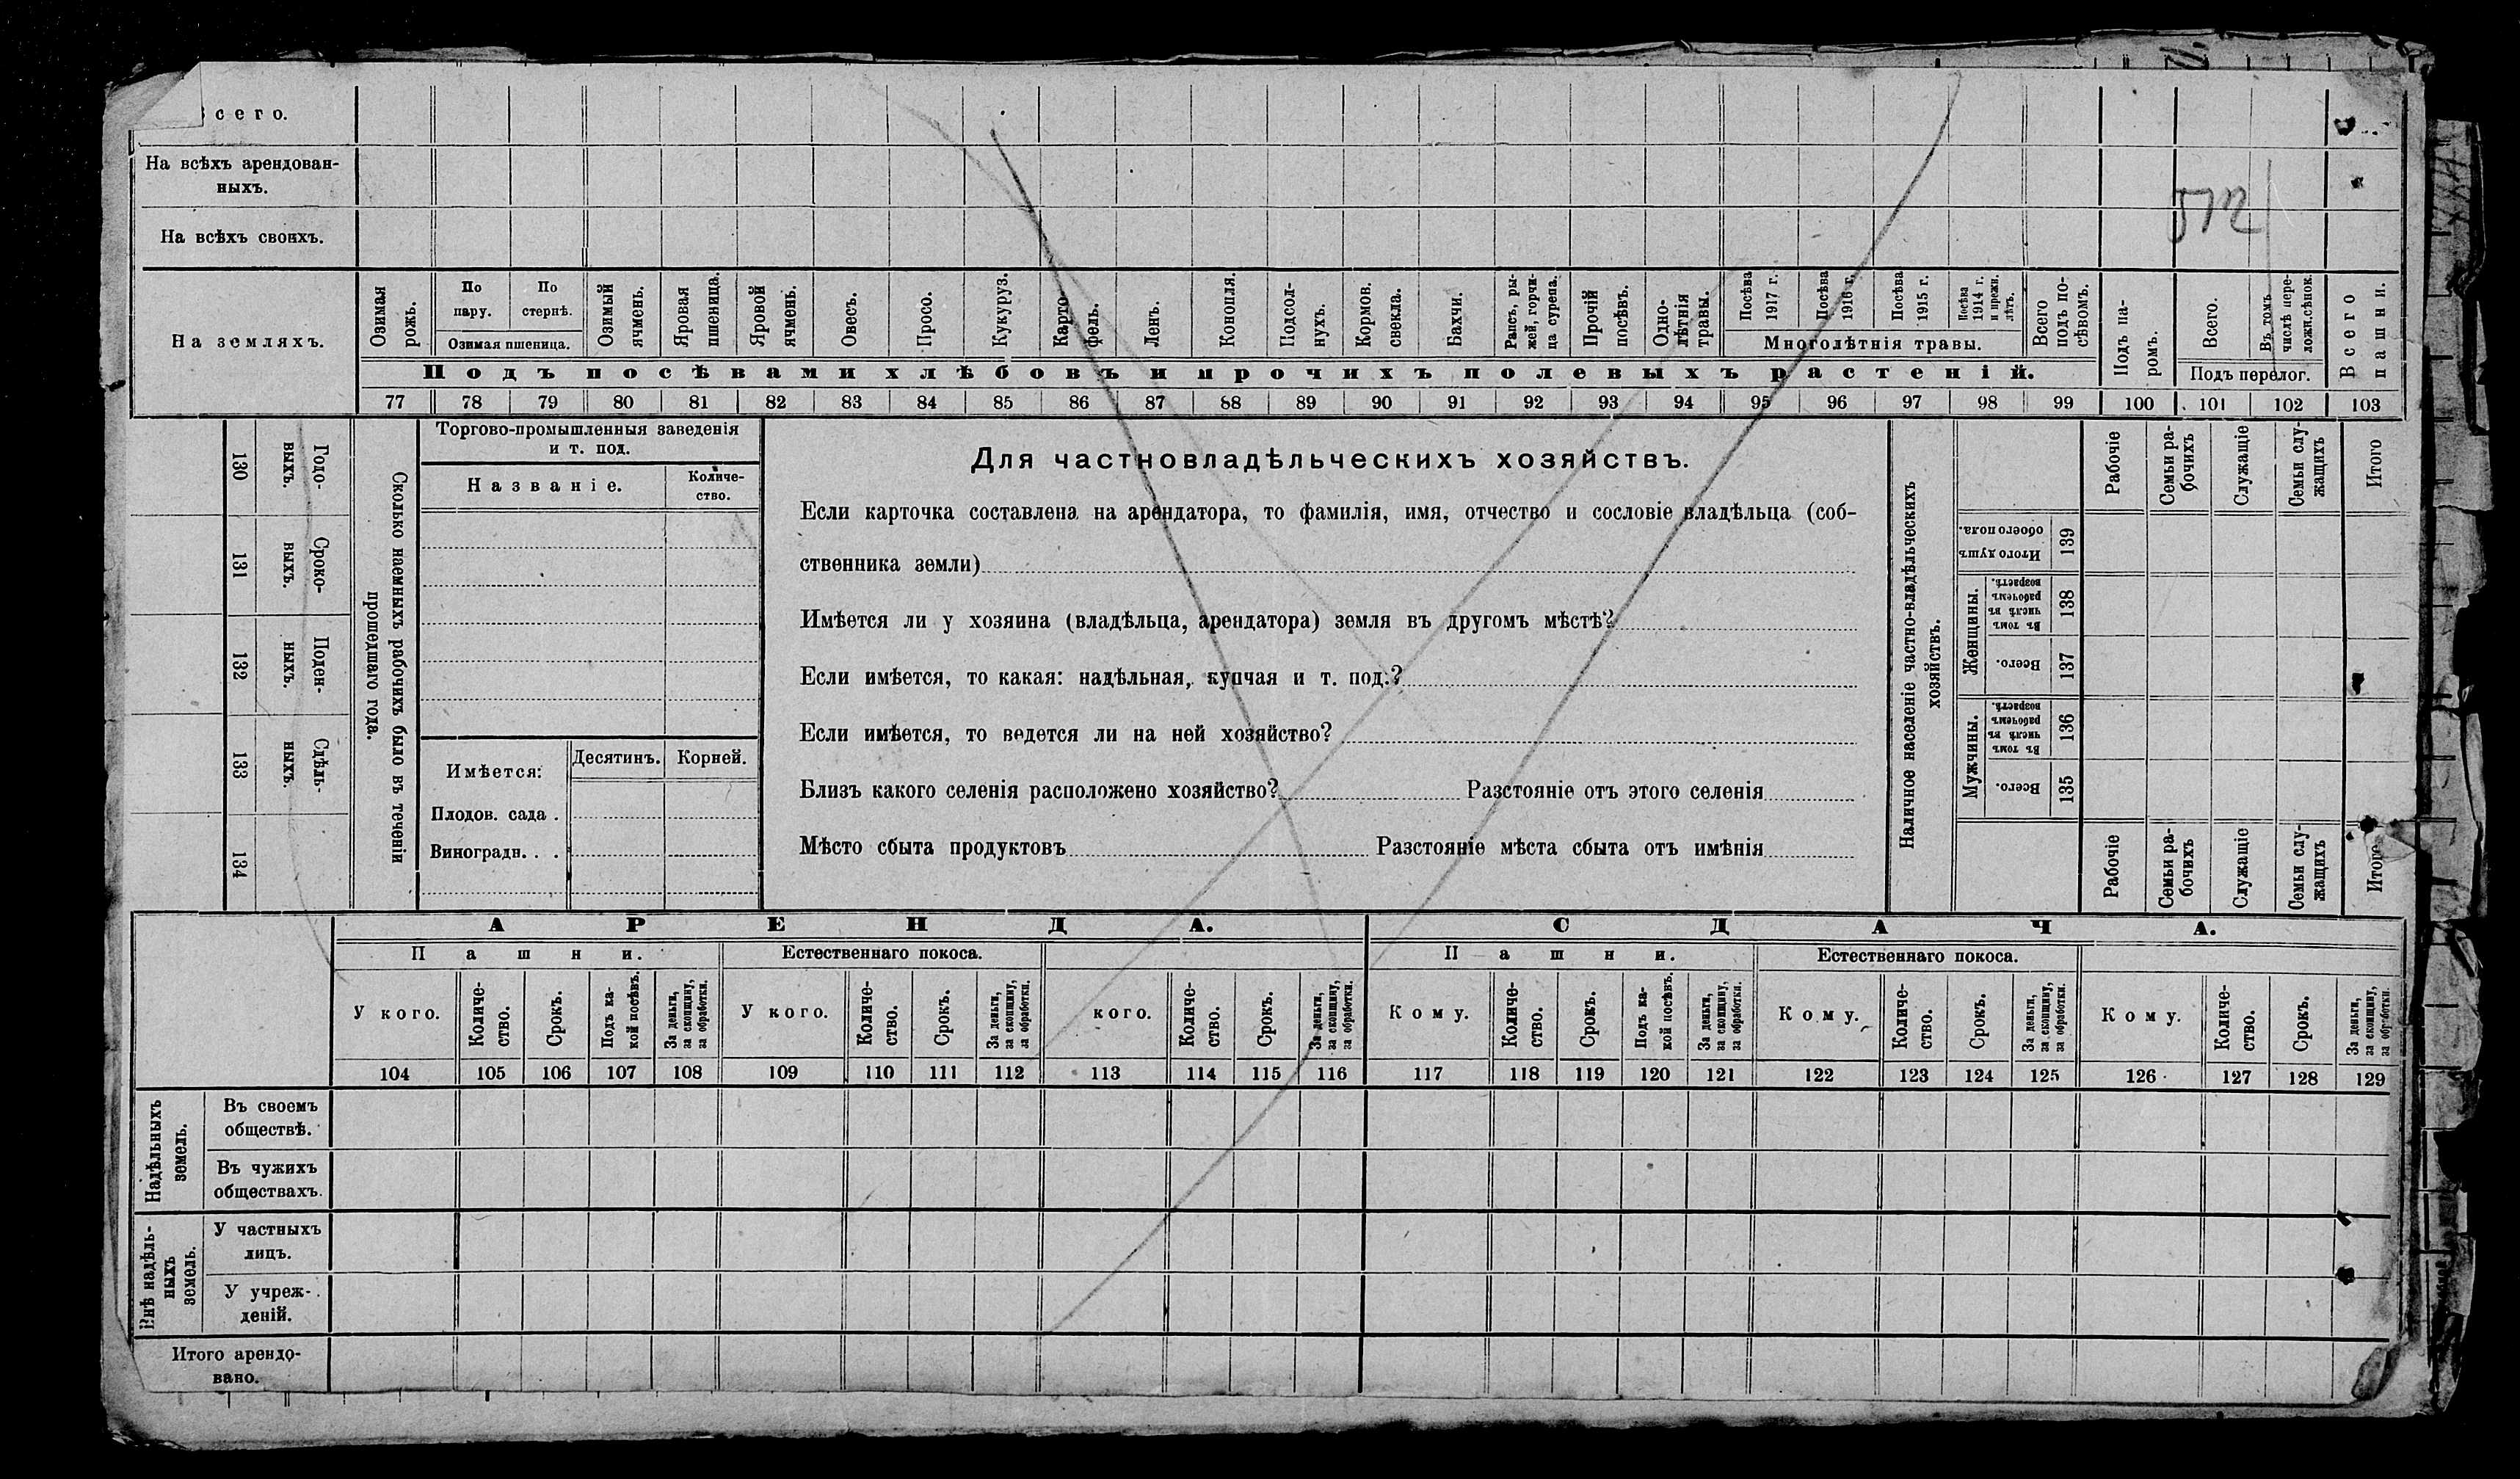 Всего.
На всѣхъ арендован-
ныхъ.
На всѣхъ своихъ.
На земляхъ.
Озимая
рожь.
По
пару.
По
стернѣ.
Озимая пшеница.
Озимый
ячмень.
Яровая
пшеница.
Яровой
ячмень.
Овесъ.
Просо.
Кукуруз.
Карто-
фель.
Ленъ.
Конопля.
Подсол-
нухъ.
Кормов.
свекла.
Бахчи.
Рапсъ, ры-
жей, горчи-
ца сурепа.
Прочій
посѣвъ.
Одно-
лѣтнія
травы.
Посѣва
1917 г.
Посѣва
1916 г.
Посѣва
1915 г.
Посѣва
1914 г.
и прежн.
лѣтъ.
Многолѣтнія травы.
Всего
подъ по-
сѣвомъ.
Подъ па-
ромъ.
Всего.
Въ томъ
числѣ пере-
ложн.сѣнок.
Подъ перелог.
Всего
пашни.
Подъ посѣвами хлѣбовъ и прочихъ полевыхъ растеній.
77 78 79 80 81 82 83 84 85 86 87 88 89 90 91 92 93 94 95 96 97 98 99 100 101 102 103
512
Сколько наемныхъ рабочихъ было въ теченіи
прошедшаго года.
Годо-
выхъ.
130
Сроко-
выхъ.
131
Поден-
ныхъ.
132
Сдѣль-
ныхъ.
133
134
Торгово-промышленныя заведенія
и т. под.
Названіе.
Количе-
ство.
Имѣется:
Десятинъ.
Корней.
Плодов. сада .
Виноградн. . .
Для частновладѣльческихъ хозяйствъ.
Если карточка составлена на арендатора, то фамилія, имя, отчество и сословіе владѣльца (соб-
ственника земли)
Имѣется ли у хозяина (владѣльца, арендатора) земля въ другомъ мѣстѣ?
Если имѣется, то какая: надѣльная, купчая и т. под.?
Если имѣется, то ведется ли на ней хозяйство?
Близъ какого селенія расположено хозяйство? Разстояніе отъ этого селенія
Мѣсто сбыта продуктовъ Разстояніе мѣста сбыта отъ имѣнія
Наличное населеніе частно-владѣльческихъ
хозяйствъ.
Рабочіе
Семьи ра-
бочихъ
Служащіе
Семьи слу-
жащихъ
Итого
Итого душъ
обоего пола.
139
Женщины.
Въ томъ
числѣ въ
рабочемъ
возрастѣ.
138
Всего.
137
Мужчины.
Въ томъ
числѣ въ
рабочемъ
возрастѣ.
136
Всего.
135
Рабочіе
Семьи ра-
бочихъ
Служащіе
Семьи слу-
жащихъ
Итого
АРЕНДА.
СДАЧА.
Пашни.
Естественнаго покоса.
Пашни.
Естественнаго покоса.
У кого.
Количе-
ство.
Срокъ.
Подъ ка-
кой посѣвъ.
За деньги,
за скопщину,
за обработки.
У кого.
Количе-
ство.
Срокъ.
За деньги,
за скопщину,
за обработки.
кого.
Количе-
ство.
Срокъ.
За деньги,
за скопщину,
за обработки.
Кому.
Количе-
ство.
Срокъ.
Подъ ка-
кой посѣвъ.
За деньги,
за скопщину,
за обработки.
Кому.
Количе-
ство.
Срокъ.
За деньги,
за скопщину,
за обработки.
Кому.
Количе-
ство.
Срокъ.
За деньги,
за скопщину,
за обработки.
104 105 106 107 108 109 110 111 112 113 114 115 116 117 118 119 120 121 122 123 124 125 126 127 128 129
Надѣльныхъ
земель.
Въ своемъ
обществѣ.
Въ чужихъ
обществахъ.
Внѣ надѣль-
ныхъ
земель.
У частныхъ
лицъ.
У учреж-
деній.
Итого арендо-
вано.